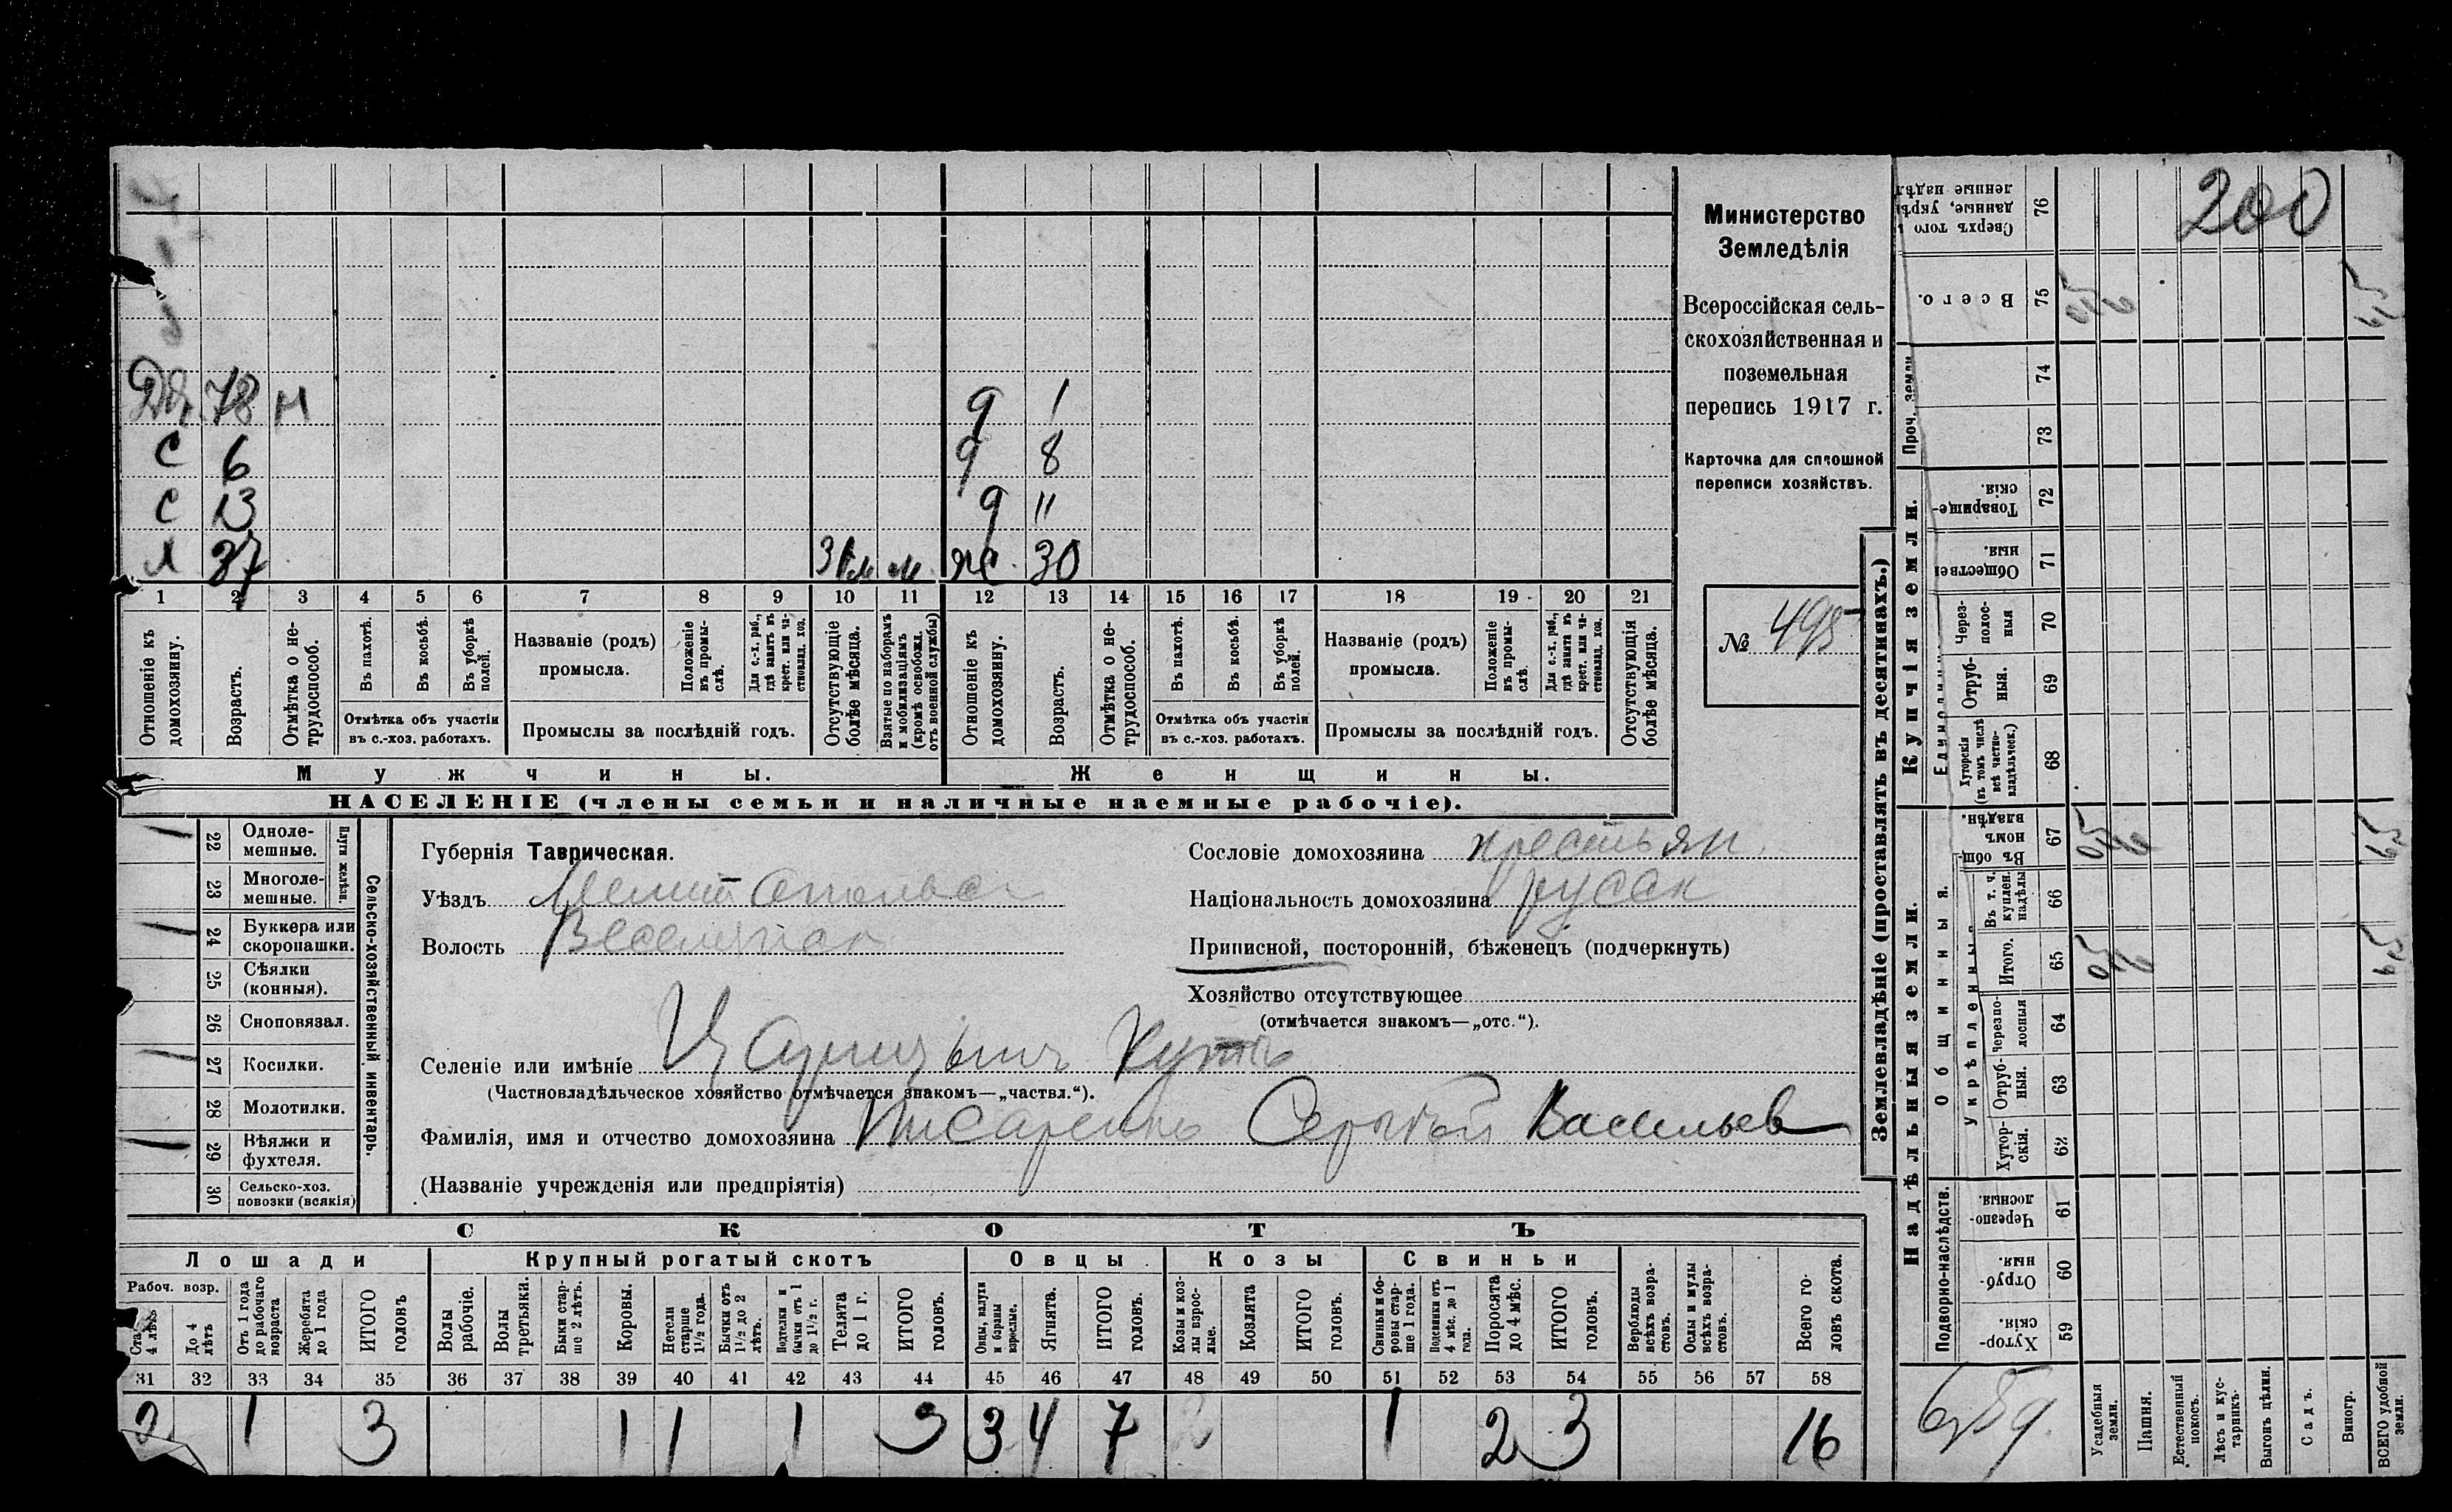 Министерство
Земледѣлія
Всероссійская сель-
скохозяйственная и
поземельная
перепись 1917 г.
Карточка для сплошной
переписи хозяйствъ.
№ 495
200
Дѣд. 78 н
д 1
с 6
д 8
с 13
д 11
х 37
ж 30
1 2 3 4 5 6 7 8 9 10 11 12 13 14 15 16 17 18 19 20 21
Отношеніе къ домохозяину.
Возрастъ.
Отмѣтка о не-трудоспособ.
Въ пахотѣ.
Въ косьбѣ.
Въ уборкѣ полей.
Отмѣтка объ участіи
въ с.-хоз. работахъ.
Названіе (родъ)
промысла.
Положеніе въ промы-слѣ.
Для с.-х. раб., гдѣ занятъ въ крест. или ча-стновлад. хоз.
Промыслы за послѣдній годъ.
Отсутствующіе болѣе мѣсяца.
Взятые по наборамъ и мобилизаціямъ (кромѣ освобожд. отъ военной службы)
Отношеніе къ домохозяину.
Возрастъ.
Отмѣтка о не-трудоспособ.
Въ пахотѣ.
Въ косьбѣ.
Въ уборкѣ полей.
Отмѣтка объ участіи
въ с.-хоз. работахъ.
Названіе (родъ)
промысла.
Положеніе въ промы-слѣ.
Для с.-х. раб., гдѣ занята въ крест. или ча-стновлад. хоз.
Промыслы за послѣдній годъ.
Отсутствующія болѣе мѣсяца.
Мужчины.
Женщины.
НАСЕЛЕНІЕ (члены семьи и наличные наемные рабочіе).
Сельско-хозяйственный инвентарь.
Плуги желѣзн.
22 Одноле-мешные.
23 Многоле-мешные.
24 Буккера или скоропашки.
25 Сѣялки (конныя).
26 Сноповязал.
27 Косилки.
28 Молотилки.
29 Вѣялки и фухтеля.
30 Сельско-хоз. повозки (всякія)
Губернія Таврическая.
Уѣздъ Мелитопольс
Волость Веселянская
Сословіе домохозяина крестьян.
Національность домохозяина русск
Приписной, посторонній, бѣженецъ (подчеркнуть)
Хозяйство отсутствующее
(отмѣчается знакомъ—„отс.“).
Селеніе или имѣніе Царицынъ Кутъ
(Частновладѣльческое хозяйство отмѣчается знакомъ—„частвл.“).
Фамилія, имя и отчество домохозяина Писаренко Сергѣй Васильев
(Названіе учрежденія или предпріятія)
СКОТЪ
Лошади
Крупный рогатый скотъ
Овцы
Козы
Свиньи
Рабоч. возр.
До 4 лѣтъ
Отъ 1 года до рабочаго возраста
Жеребята до 1 года
ИТОГО головъ
Волы рабочіе.
Волы третьяки.
Быки стар-ше 2 лѣтъ.
Коровы.
Нетели старше 1½ года.
Бычки отъ 1½ до 2 лѣтъ.
Подтелки и бычки отъ 1 до 1½ г.
Телята до 1 г.
ИТОГО головъ.
Овцы, валухи и бараны взрослые.
Ягнята.
ИТОГО головъ.
Козы и коз-лы взрос-лые.
Козлята
ИТОГО головъ.
Свиньи и бо-ровы стар-ше 1 года.
Подсвинки отъ 4 мѣс. до 1 года.
Поросята до 4 мѣс.
ИТОГО головъ.
Верблюды всѣхъ возра-стовъ.
Ослы и мулы всѣхъ возра-стовъ.
Всего го-ловъ скота.
31 32 33 34 35 36 37 38 39 40 41 42 43 44 45 46 47 48 49 50 51 52 53 54 55 56 57 58
2 1 3 1 1 1 3 3 4 7 1 2 3 16
Землевладѣніе (проставлять въ десятинахъ.)
Купчія земли.
Надѣльныя земли.
Проч. земли
Общинныя.
Укрѣпленныя
Подворно-наслѣдств.
76
75 Всего.
74
73
72 Товарище-скія.
71
70 Через-полос-ныя
69 Отруб-ныя.
68 Хуторскія (въ томъ числѣ всѣ частно-владѣльческ.)
67 Въ общ-номъ владѣн.
66 Въ т. ч. куплен. надѣлы
65 Итого.
64 Черезпо-лосныя
63 Отруб-ныя.
62 Хутор-скія.
61 Черезпо-лосныя.
60 Отруб-ныя.
59 Хутор-скія.
Усадебныя земли.
Пашня.
Естественный покосъ.
Лѣсъ и кус-тарникъ.
Выгонъ цѣлин.
Садъ.
Виногр.
ВСЕГО удобной земли.